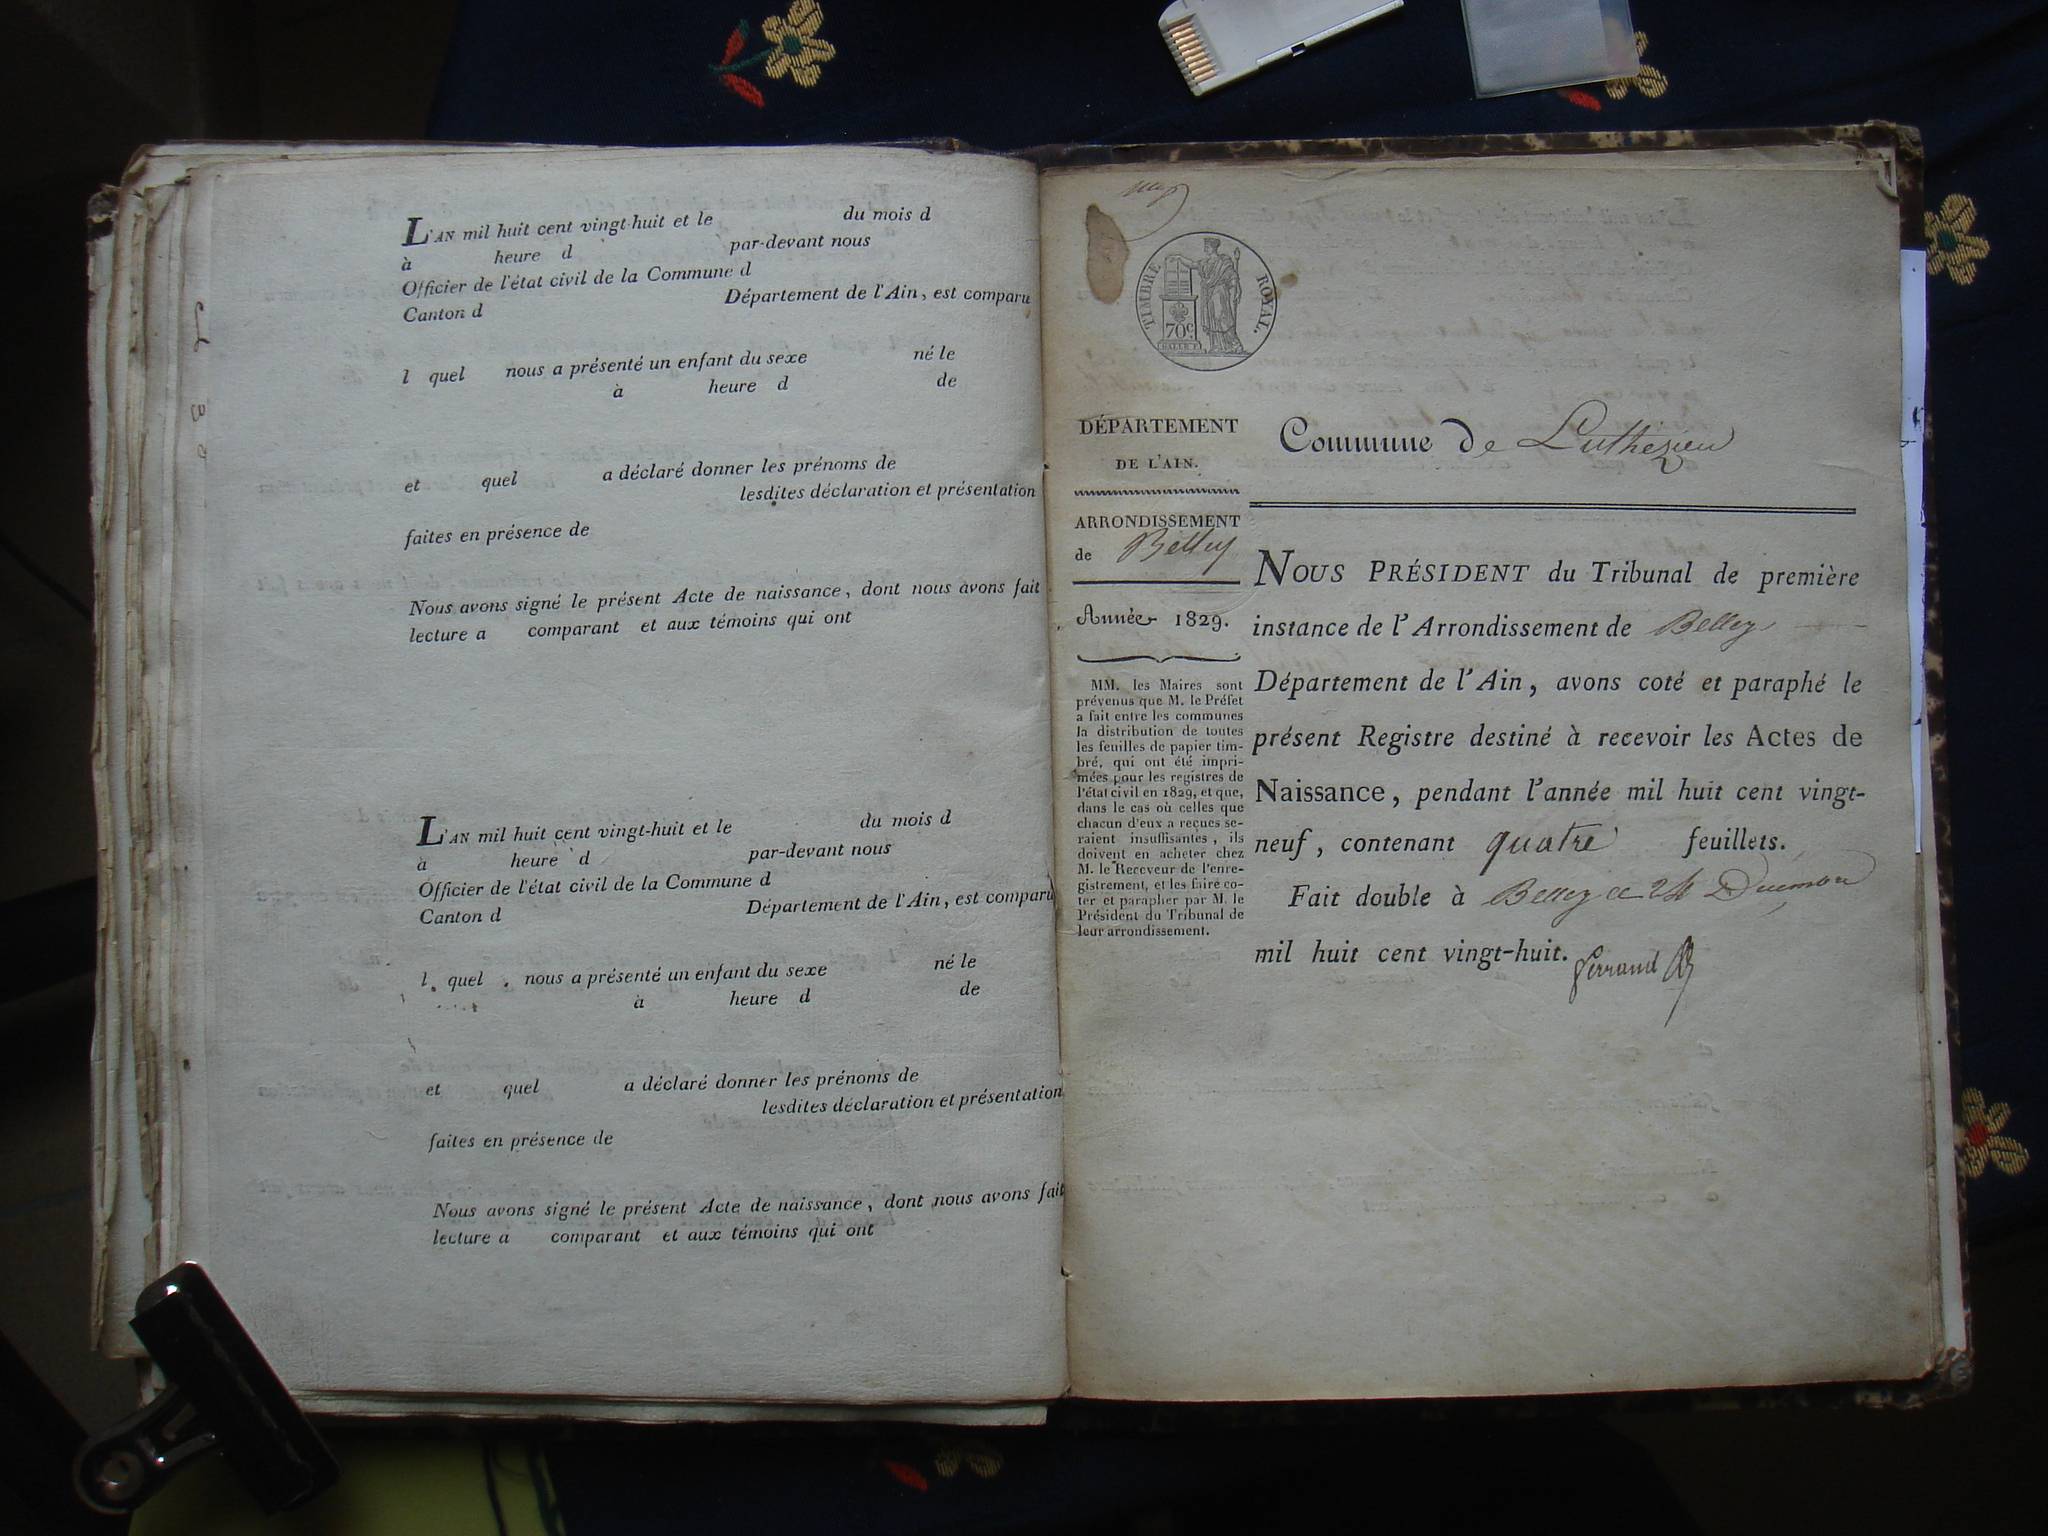 L'AN mil huit cent vingt-huit et le du mois d
à heure d par-devant nous
Officier de l'état civil de la Commune d
Canton d Département de l'Ain, est comparu
l quel nous a présenté un enfant du sexe né le
à heure d de
et quel a déclaré donner les prénoms de
lesdites déclaration et présentation
faites en présence de
Nous avons signé le présent Acte de naissance, dont nous avons fait
lecture a comparant et aux témoins qui ont
L'AN mil huit cent vingt-huit et le du mois d
à heure d par-devant nous
Officier de l'état civil de la Commune d
Canton d Département de l'Ain, est comparu
l quel nous a présenté un enfant du sexe né le
à heure d de
et quel a déclaré donner les prénoms de
lesdites déclaration et présentation
faites en présence de
Nous avons signé le présent Acte de naissance, dont nous avons fait
lecture a comparant et aux témoins qui ont
TIMBRE ROYAL.
70c
DÉPARTEMENT
DE L'AIN.
ARRONDISSEMENT
de Belley
Année 1829.
MM. les Maires sont
prévenus que M. le Préfet
a fait entre les communes
la distribution de toutes
les feuilles de papier tim-
bré, qui ont été impri-
mées pour les registres de
l'état civil en 1829, et que,
dans le cas où celles que
chacun d'eux a reçues se-
raient insuffisantes, ils
doivent en acheter chez
M. le Receveur de l'enre-
gistrement, et les faire co-
ter et parapher par M. le
Président du Tribunal de
leur arrondissement.
Commune de Luthezieu
NOUS PRÉSIDENT du Tribunal de première
instance de l'Arrondissement de Belley
Département de l'Ain, avons coté et paraphé le
présent Registre destiné à recevoir les Actes de
Naissance, pendant l'année mil huit cent vingt-
neuf, contenant quatre feuillets.
Fait double à Belley ce 24
mil huit cent vingt-huit.